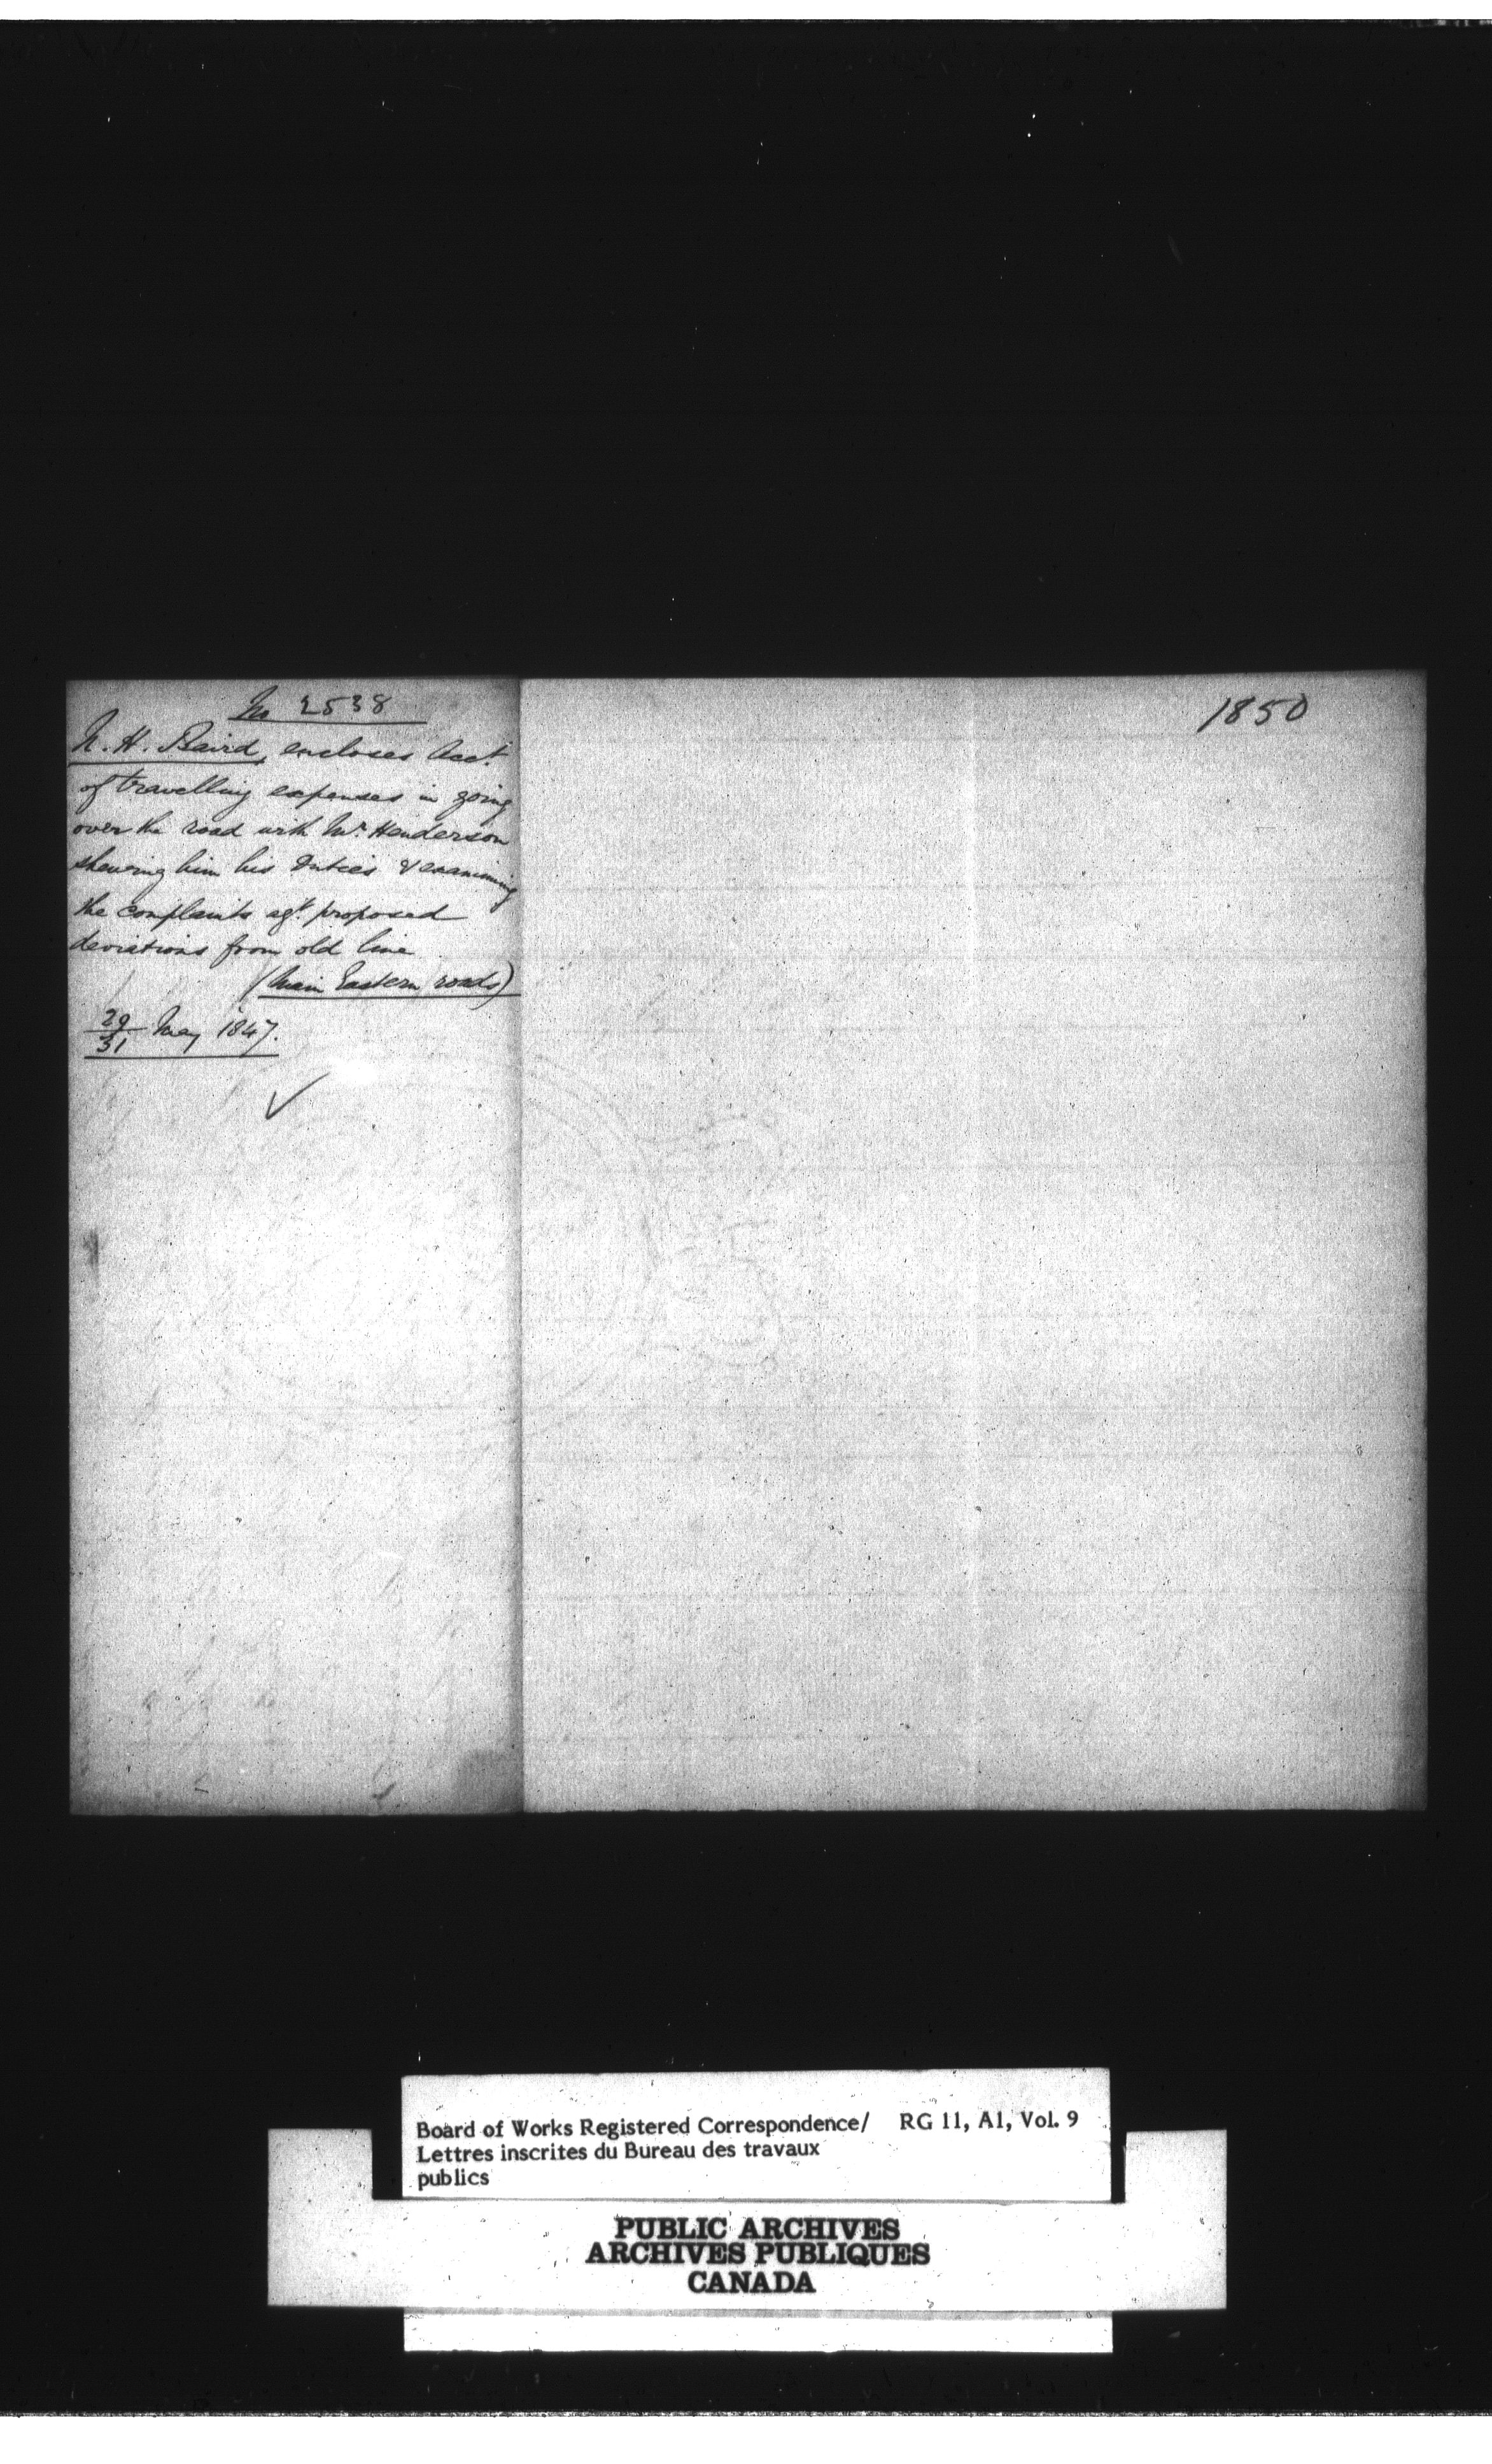 No 2538
N. H. Baird, encloses Acct.
of travelling expenses in going
over the road with Mr. Henderson
shewing him his Duties & examining
the complaints agt. proposed
deviations from old line
(Main Eastern roads)
29/31 May 1847.
1850
Board of Works Registered Correspondence/ RG 11, A1, Vol. 9
Lettres inscrites du Bureau des travaux
publics
PUBLIC ARCHIVES
ARCHIVES PUBLIQUES
CANADA